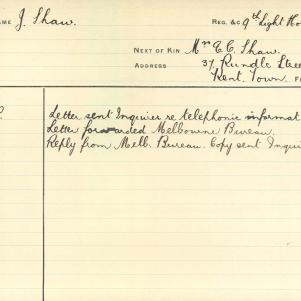 AME J. Shaw.
REG. &C 9th Light Ho
NEXT OF KIN Mr E.C. Shaw.
ADDRESS 37, Rundle Stree
Kent. Town.
Letter sent Inquirer re telephonic informat
Letter forwarded Melbourne Bureau.
Reply from Melb. Bureau. Copy sent Inqui